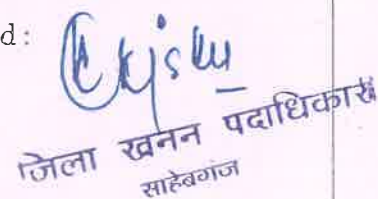 d:
जिला खनन पदाधिकारी
साहेबगंज